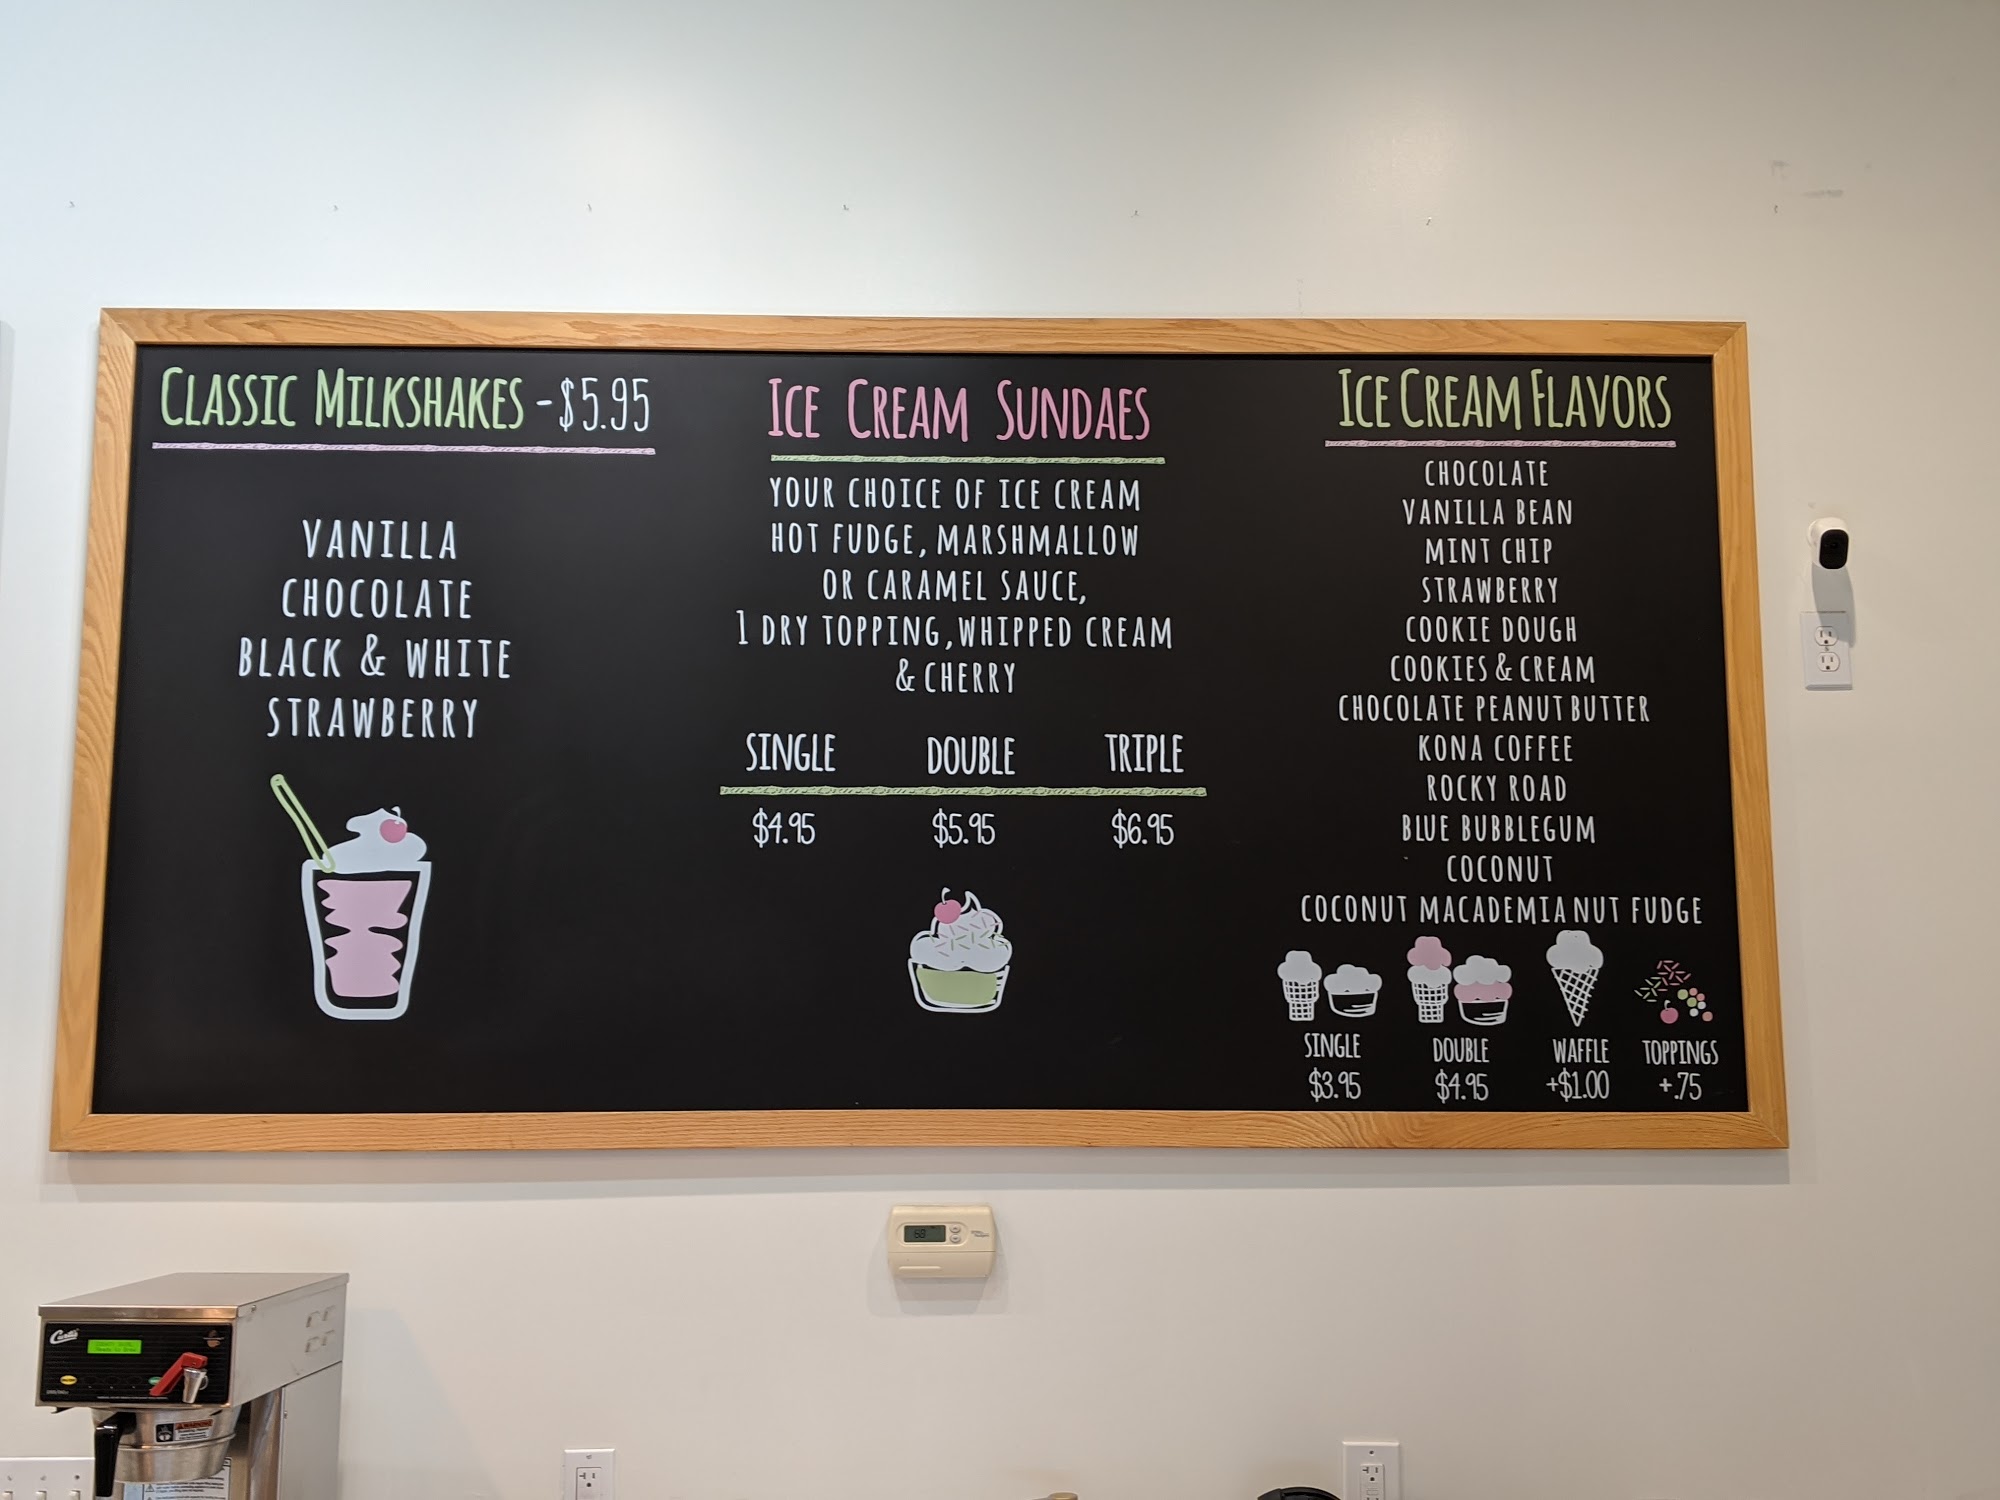 CLASSIC MILKSHAKES - $5.95
VANILLA
CHOCOLATE
BLACK & WHITE
STRAWBERRY
ICE CREAM SUNDAES
YOUR CHOICE OF ICE CREAM
HOT FUDGE, MARSHMALLOW
OR CARAMEL SAUCE,
1 DRY TOPPING, WHIPPED CREAM
& CHERRY
SINGLE DOUBLE TRIPLE
$4.95 $5.95 $6.95
ICE CREAM FLAVORS
CHOCOLATE
VANILLA BEAN
MINT CHIP
STRAWBERRY
COOKIE DOUGH
COOKIES & CREAM
CHOCOLATE PEANUT BUTTER
KONA COFFEE
ROCKY ROAD
BLUE BUBBLEGUM
COCONUT
COCONUT MACADEMIA NUT FUDGE
SINGLE DOUBLE WAFFLE TOPPINGS
$3.95 $4.95 +$1.00 +.75
68
Curtis
WARNING